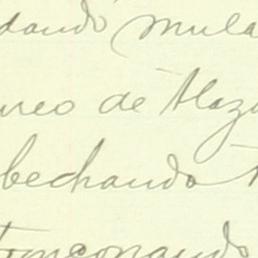 dando mula
neo de Alaza
bechando